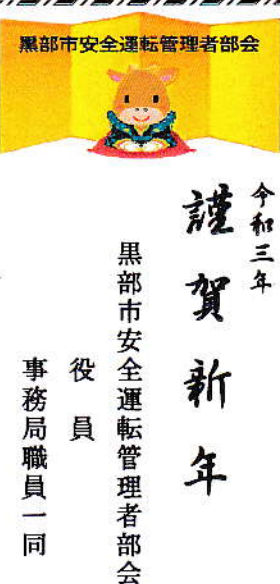 黒部市安全運転管理者部会
令和三年
謹賀新年
黒部市安全運転管理者部会
役員
事務局職員一同